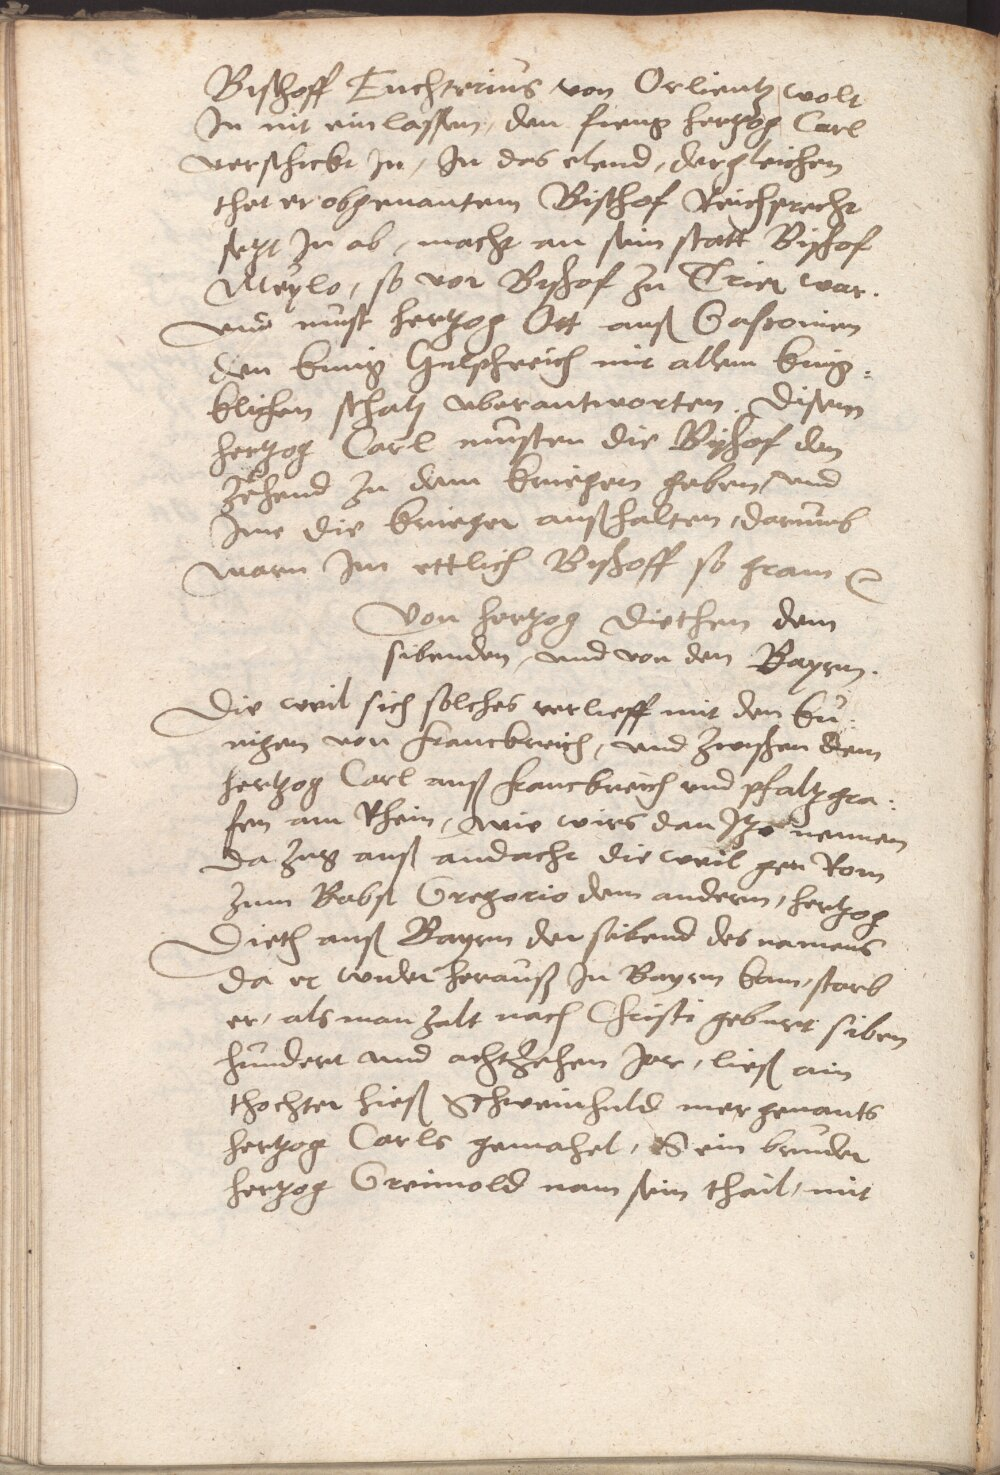 Bischoff Euchterius von Orlientz wolt
In nit einlassen, den fieng hertzog Carl
verschickt In, In das elend, dergleichen
thet er obgenantem Bischof Reichprecht
setzt In ab, macht an sein statt Bischof
Meylo, so vor Bischof zu Trier war.
und must hertzog Ott auß Gasconien
den kunig Hylpereich mit allem kunig:
klichen schatz uberantworten. Disem
hertzog Carl musten die Bischof den
Zehend zu dem kriegen geben, und
Ime die krieger außhalten, darumb
warn Im ettlich Bischoff so gram
Von hertzog Diethen dem
sibenden, und von den Bayrn.
Die weil sich solches verlieff mit den ku:
nigen von franckreich, und zwischen dem
hertzog Carl auß franckreich und pfaltzgra:
fen am Rhein, wie wirs dan Itzo nennen
Da zug auß andacht die weil gen Rom
zum Babst Gregorio dem andern, hertzog
Dieth auß Bayrn der sibend des namens
da er wider herauß In Bayrn kam, starb
er, als man zalt nach Christi geburt siben
hundert und achtzehen Jar, ließ ain
thochter hieß Schweinhuld mergenants
hertzog Carls gemahel, Sein bruder
hertzog Greimold nam sein thail, mit